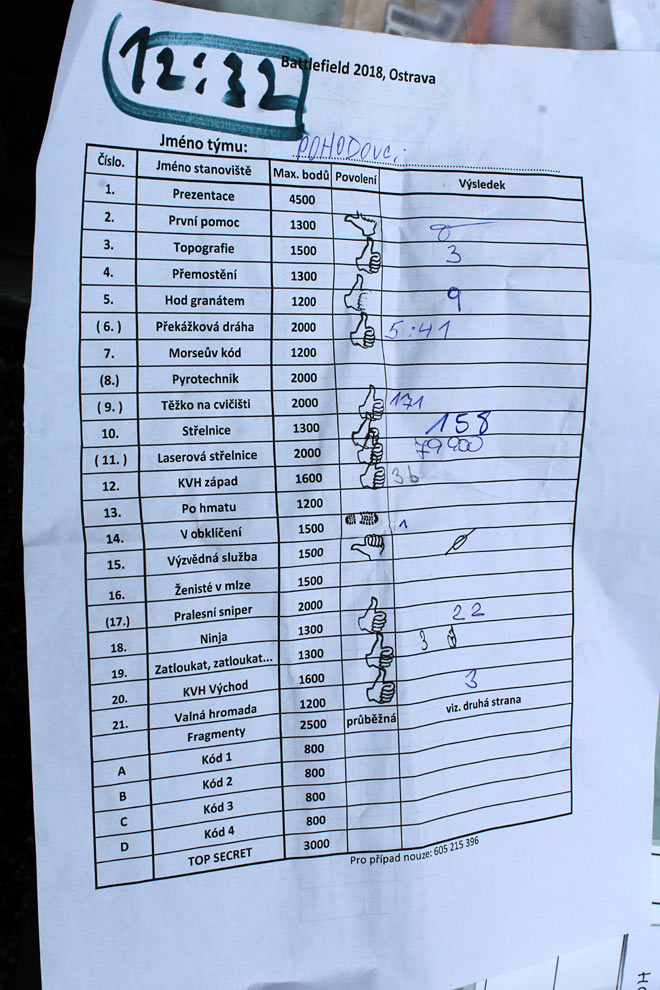 12:32
Battlefield 2018, Ostrava
Jméno týmu: POHODOVCI
Číslo. Jméno stanoviště Max. bodů Povolení Výsledek
1. Prezentace 4500
2. První pomoc 1300
3. Topografie 1500 3
4. Přemostění 1300
5. Hod granátem 1200 9
(6.) Překážková dráha 2000 5:41
7. Morseův kód 1200
(8.) Pyrotechnik 2000
(9.) Těžko na cvičišti 2000 171
10. Střelnice 1300 158
(11.) Laserová střelnice 2000
12. KVH západ 1600
13. Po hmatu 1200
14. V obklíčení 1500 1
15. Výzvědná služba 1500
16. Ženisté v mlze 1500
(17.) Pralesní sniper 2000 22
18. Ninja 1300 3
19. Zatloukat, zatloukat... 1300
20. KVH Východ 1600 3
21. Valná hromada 1200
Fragmenty 2500 průběžná viz. druhá strana
A Kód 1 800
B Kód 2 800
C Kód 3 800
D Kód 4 800
TOP SECRET 3000
Pro případ nouze: 605 215 396